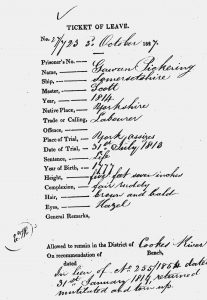 TICKET OF LEAVE.
No. 27/723 2 October 1827.
Prisoner's No.
Name, Gawen Pickering
Ship, Somersetshire
Master, Scott
Year, 1814
Native Place, Yorkshire
Trade or Calling, Labourer
Offence,
Place of Trial, York assizes
Date of Trial, 31st July 1813
Sentence, Life
Year of Birth, 1777
Height, five feet seven inches
Complexion, fair ruddy
Hair, brown and bald
Eyes, Hazel
General Remarks,
Allowed to remain in the District of Cooks River
On recommendation of Bench,
dated
In lieu of No. 255/1854 dated
31st January 18, returned
mutilated and torn up